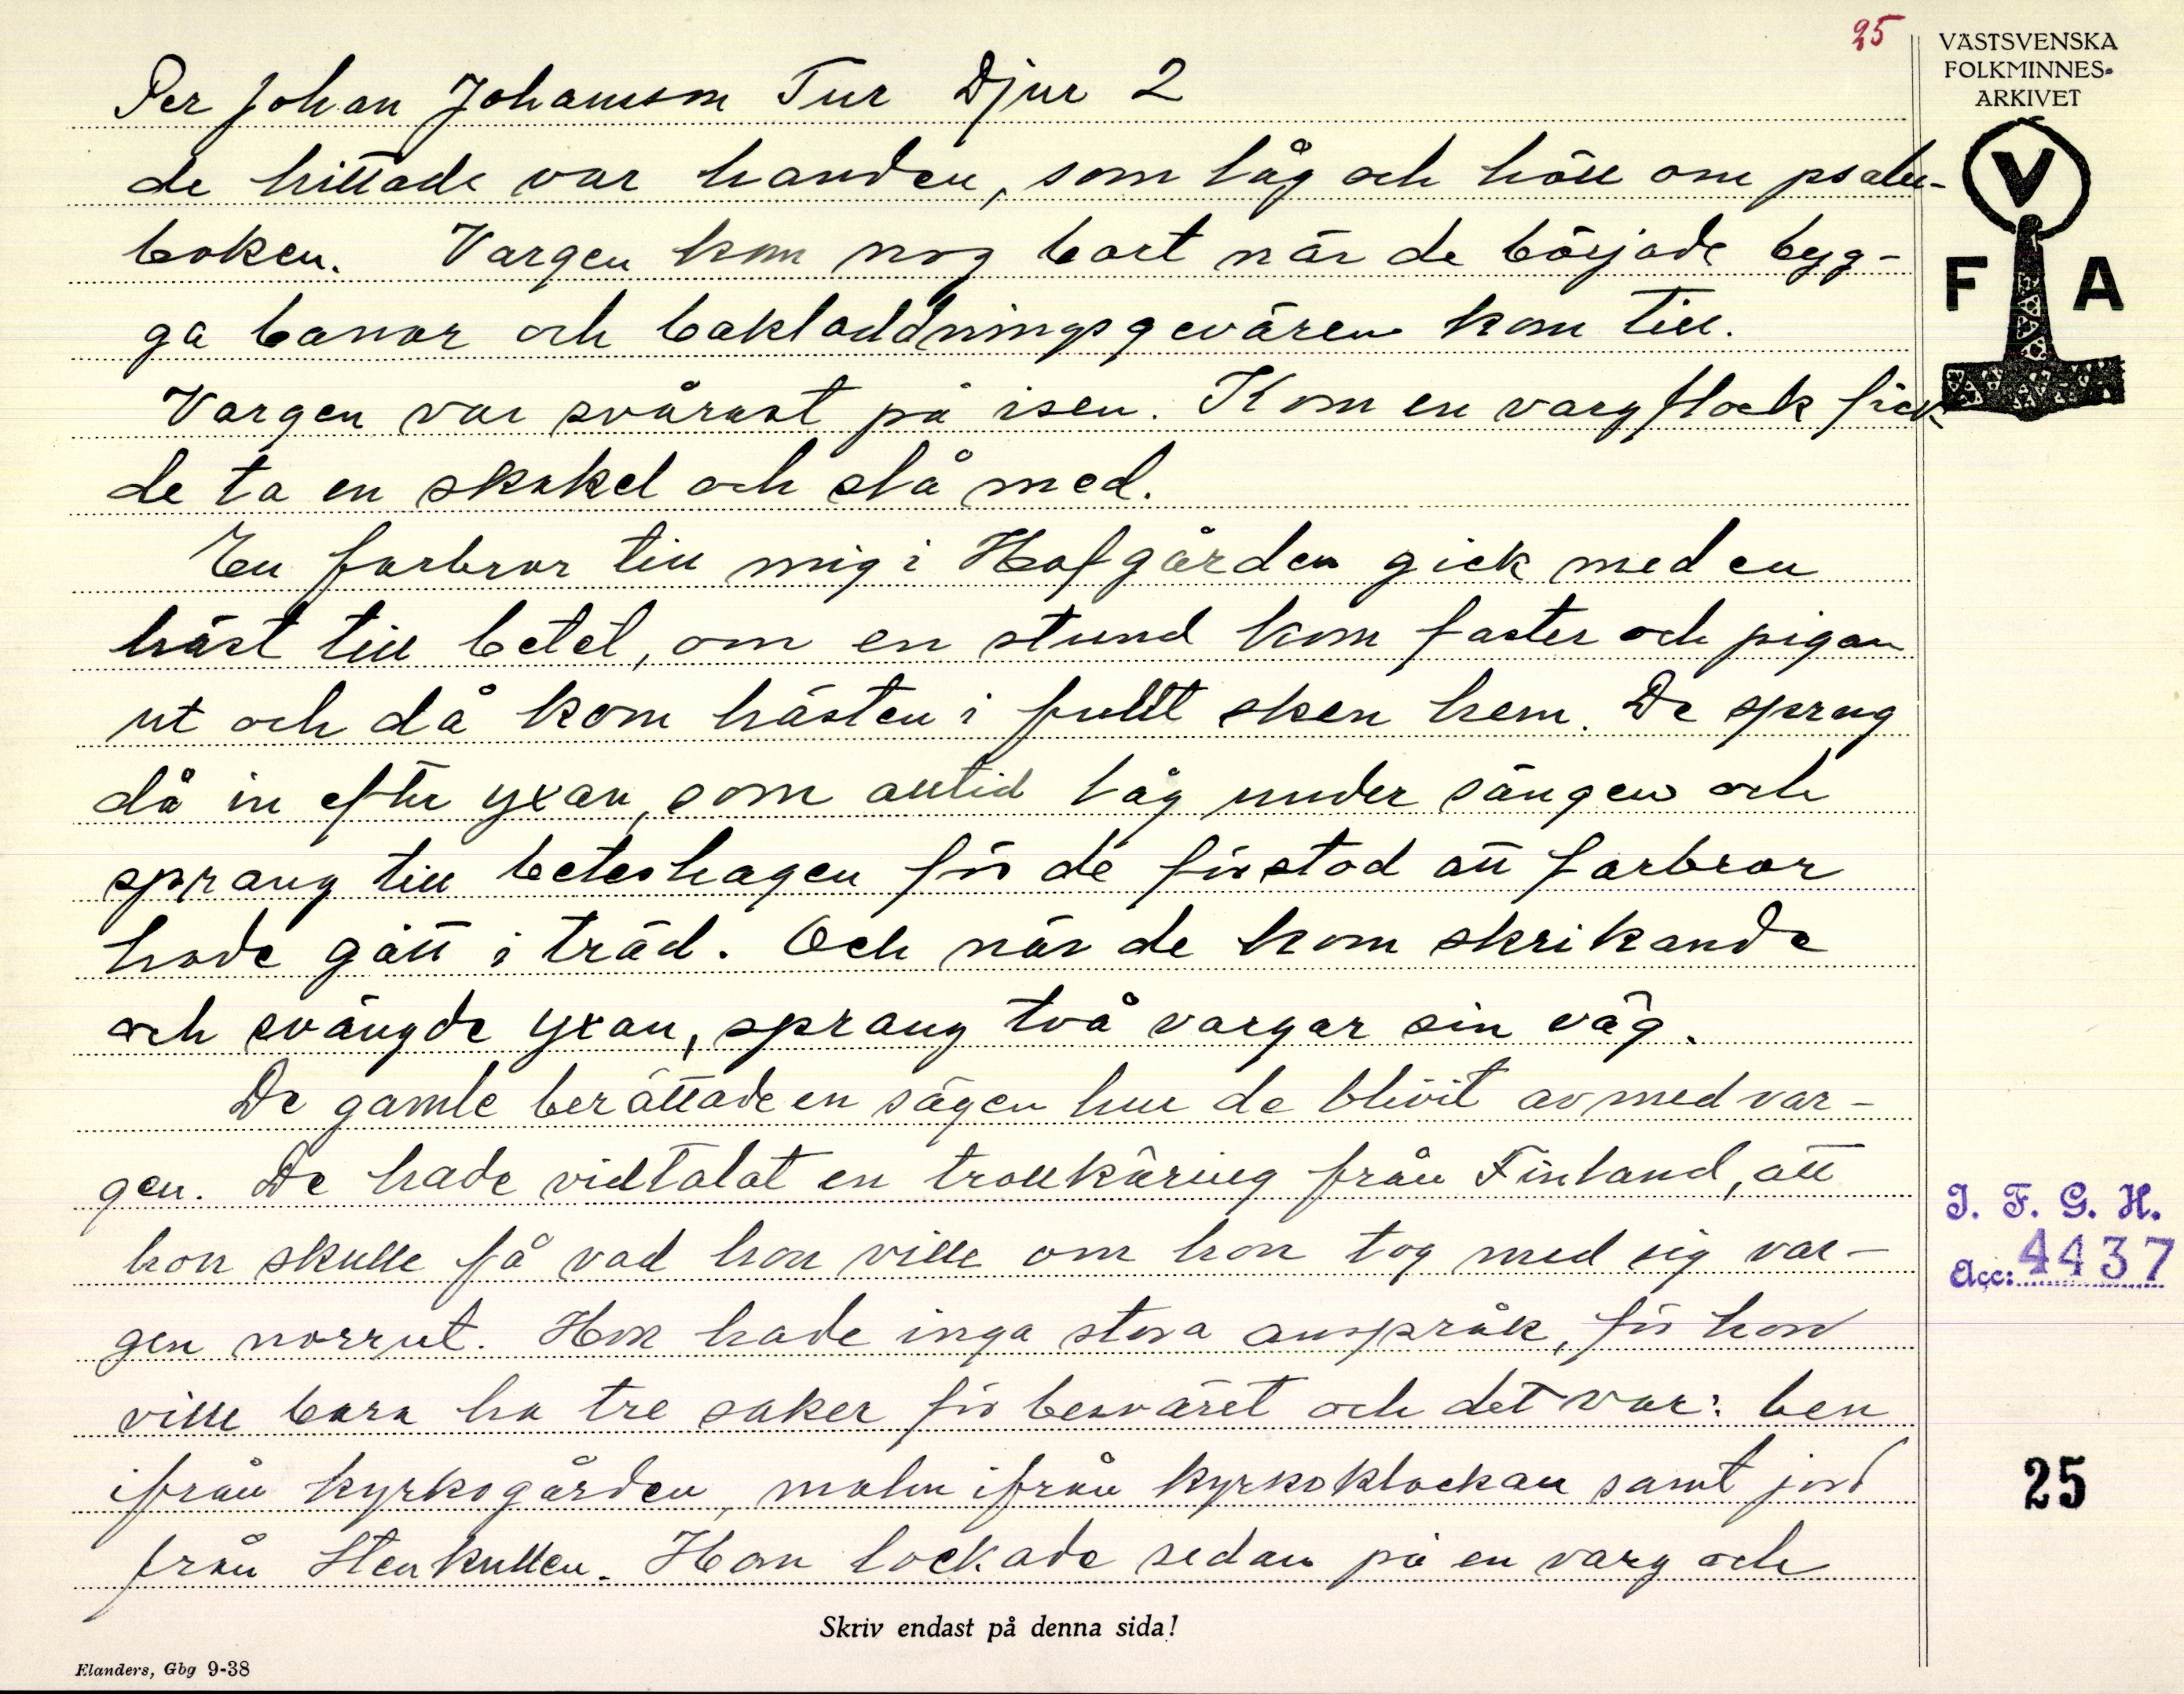 25
VÄSTSVENSKA
FOLKMINNES-
ARKIVET
V
F A
Per Johan Johansson Tur Djur 2
de hittade var handen, som låg och höll om psalm-
boken. Vargen kom nog bort när de började byg-
ga banor och bakladdningsgevären kom till.
Vargen var svårast på isen. Kom en vargflock fick
de ta en skakel och slå med.
En farbror till mig i Hofgården gick med en
häst till betet, om en stund kom faster och pigan
ut och då kom hästen i fullt sken hem. De sprang
då in efter yxan, som alltid låg under sängen och
sprang till beteshagen för de förstod att farbror
hade gått i träd. Och när de kom skrikande
och svängde yxan, sprang två vargar sin väg.
De gamle berättade en sägen hur de blivit av med var-
gen. De hade vidtalat en trollkäring från Finland, att
hon skulle få vad hon ville om hon tog med sig var-
gen norrut. Hon hade inga stora anspråk, för hon
ville bara ha tre saker för besväret och det var: ben
ifrån kyrkogården, malm ifrån kyrkoklockan samt jord
från Stenkullen. Hon lockade sedan på en varg och
I. F. G. H.
Acc: 4437
25
Skriv endast på denna sida!
Elanders, Gbg 9-38